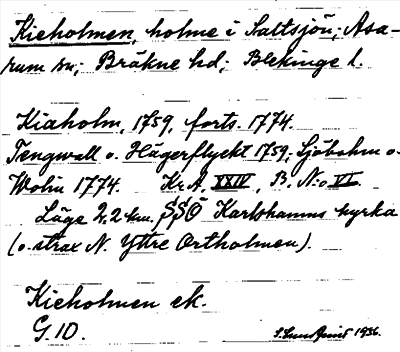 Kieholmen, holme i Saltsjön; Asa-
rum sn; Bräkne hd; Blekinge l.
Kiaholm, 1759, forts. 1774.
Tengwall o. Hägerflyckt 1759; Sjöbohm o.
Wolin 1774. Kr. A. XXIV, B. N:o VI.
Läge 2,2 km. SSÖ Karlshamns kyrka
(o. strax N. Yttre Ortholmen).
Kieholmen ek.
G. 10.
1936.